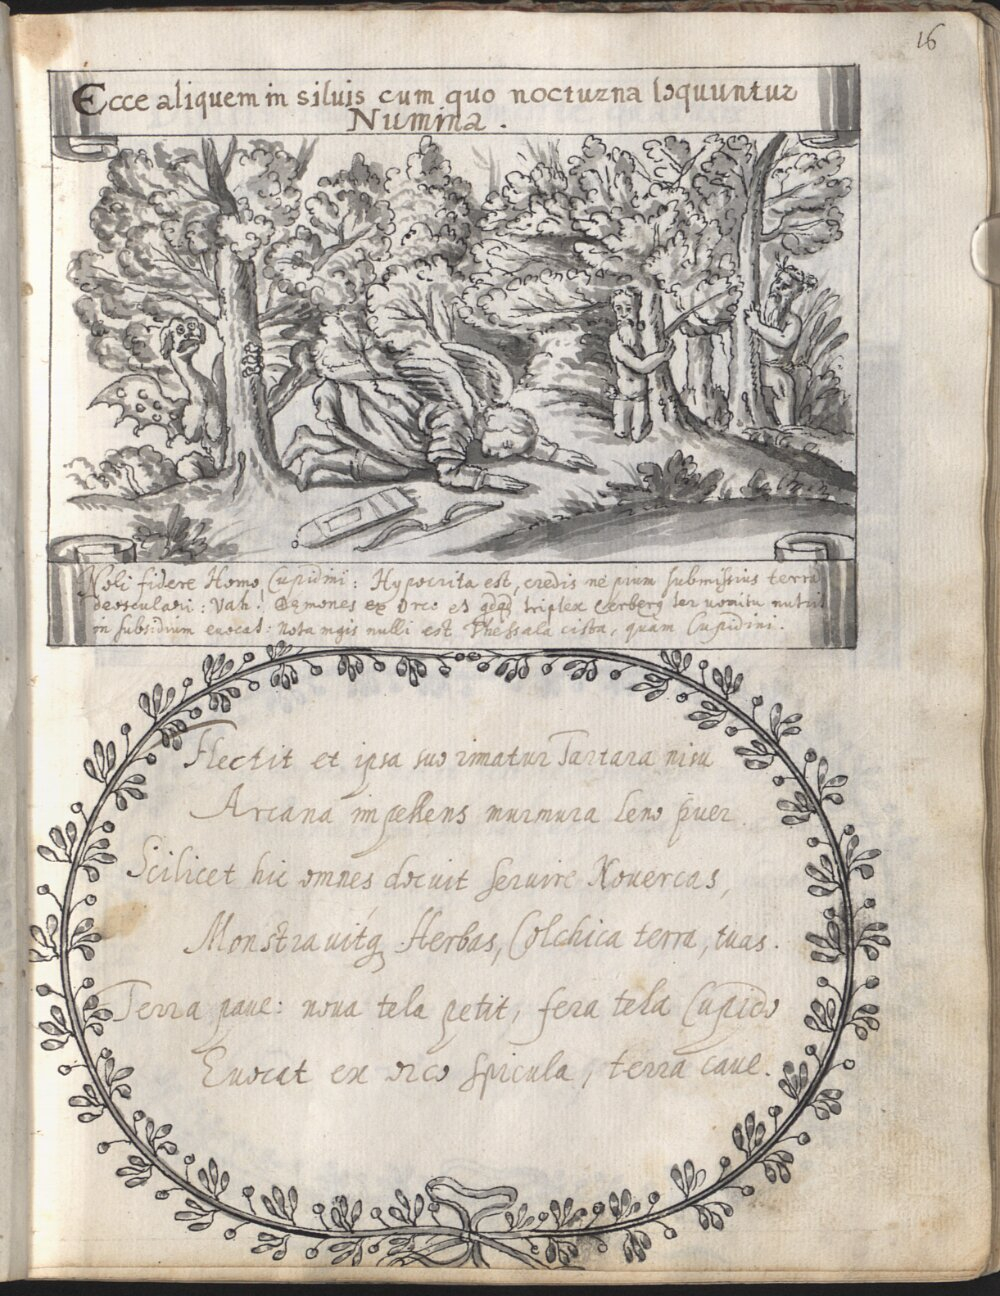 16
Ecce aliquem in siluis cum quo nocturna loquuntur
Numina.
Noli fidere Homo Cupidini: Hypocrita est, credis ne pium submissius terra
deosculari: Vah! Dęmones ex Orco et triplex ter vomitu
in subsidium euocat: nota mgis nulli est Thessala cista, quam Cupidini.
Flectit et ipsa suo rimatur Tartara nisu
Arcana impellens murmura leno puer
Scilicet hic omnes docuit seruire Nouercas,
Monstrauitq Herbas, Colchica terra, tuas.
Terra paue: noua tela petit, fera tela Cupido
Euocat ex orco spicula, terra caue.